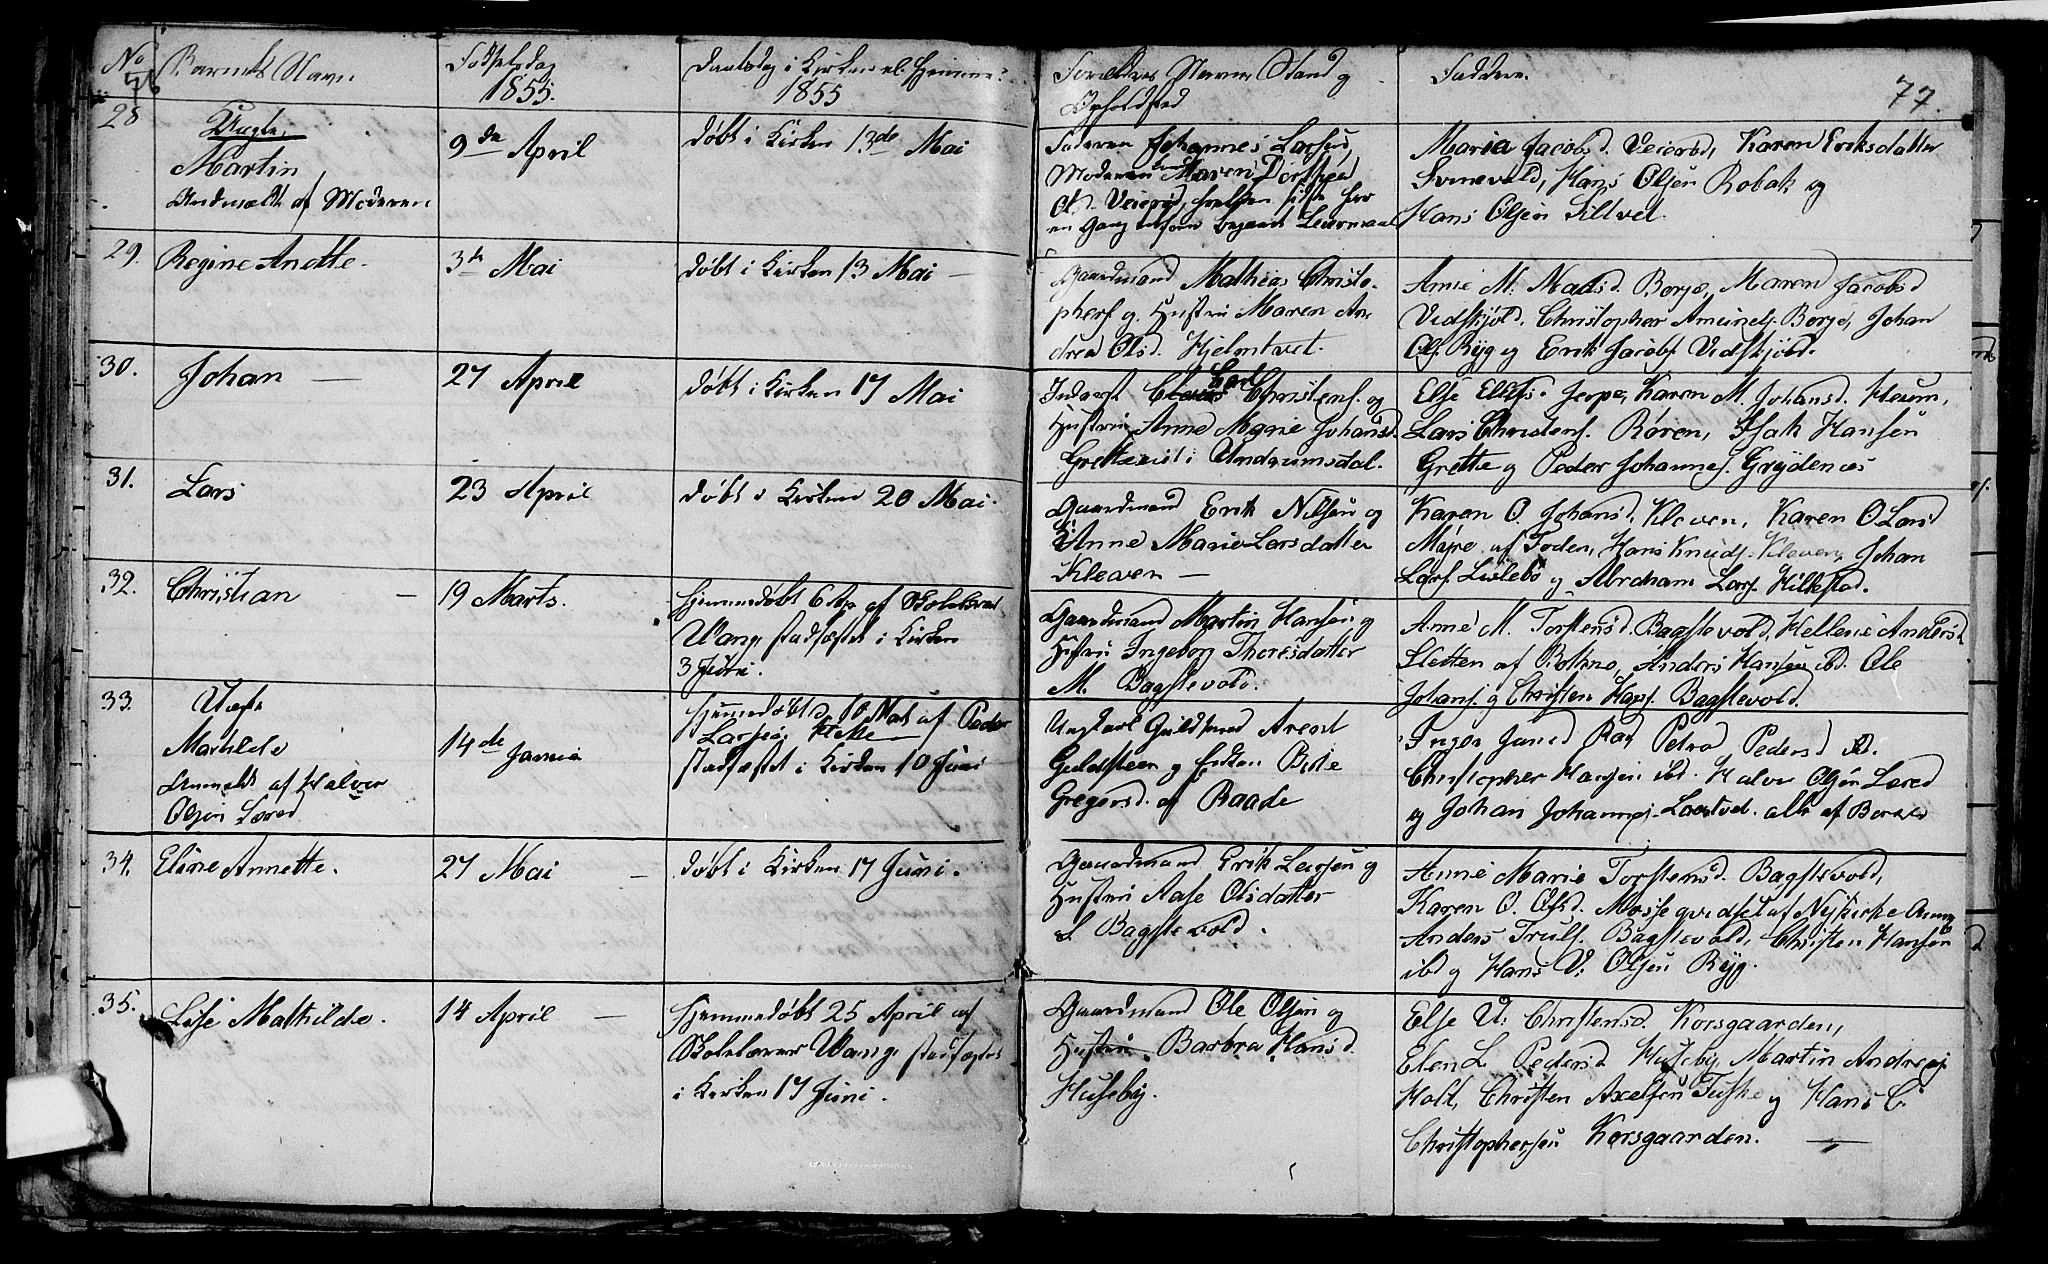 No
76
Barnets Navn
Fødselsdag
1855.
Daabsdag i Kirken el. Hjemme
1855
Forældres Navne Stand og
Opholdsted
Faddere.
77.
28
Uægte,
Martin
Andmældt af Moderen
9de April
døbt i Kirken 13de Mai
Faderen Johannes Larsen,
Moderen Maren Dorthea
Ol.d. Veierød,
en Gang
Maria Jacobsd. Veierød, Karen Eriksdatter
Svinevold, Hans Olsen Robak og
Hans Olsen Siltvet.
29.
Regine Anette.
3de Mai
døbt i Kirken 13 Mai
Gaardmand Mathias Christo-
phers. og Hustru Maren An-
drea Olsd. Hjelmtvet.
Anne M. Madsd. Borge, Maren Jacobsd
Vidskjøld. Christopher Amunds. Borge, Johan
Ols. Ryg og Erik Jacobs. Vidskjøld.
30.
Johan —
27 April
døbt i Kirken 17 Mai
Inderst Carl Christens. og
Hustru Anne Marie Johansd.
Grette eiet i Undrumsdal.
Else Ellefs. Jerpe, Karen M. Johansd. Heum,
Lars Christens. Røren, Isak Hansen
Grette og Peder Johannes. Grydenæs
31.
Lars
23 April
døbt i Kirken 20 Mai.
Gaardmand Erik Nilsen og
H. Anne Marie Larsdatter
Kleven —
Karen O. Johansd. Kleven, Karen O. Larsd
Myre af Foden, Hans Knuds. Kleven, Johan
Lars. Lislebø og Abraham Lars. Hillestad.
32.
Christian —
19 Marts.
Hjemmedøbt 6 Ap. af Skolelærer
Wang, stadfæstet i Kirken
3 Juni.
Gaardmand Martin Hansen og
Hustru Ingeborg Thoresdatter
M. Bagstevold.
Anne M. Torstensd. Bagstevold, Hellene Andersd.
Sletten af Botne, Anders Hansen ibd. Ole
Johans. og Christen Hans. Bagstevold.
33.
Uægte
Mathilde
Anmeldt af Halvor
Olsen Lered
14de Januar
Hjemmedøbt d. 18 Mai af Peder
Larsen
stadfæstet i Kirken 10 Juni
Ungkarl Guldsmed Arent
Guldsteen og Enken Birte
Gregersd. af Raade
Inger Jansd Petra Pedersd
Christopher Hansen ibd. Halvor Olsen Lered
og Johan Johannes. alle af Borre
34.
Eline Annette.
27 Mai —
døbt i Kirken 17 Juni.
Gaardmand Erik Larsen og
Hustru Aase Olsdatter
S. Bagstevold.
Anne Marie Torstensd. Bagstevold,
Karen O. Olsd. af Nykirke
Anders Truls. Bagstevold, Christen Hansen
ibd og Hans V. Olsen Ryg.
35.
Lise Mathilde.
14 April —
Hjemmedøbt 25 April af
Skolelærer Wang, stadfæstet
i Kirken 17 Juni.
Gaardmand Ole Olsen og
Hustru Barbra Hansd.
Huseby.
Else U. Christensd. Korsgaarden,
Elen L. Pedersd Huseby, Martin Andreas.
Holt, Christen Axelsen Tuske og Hans C.
Christophersen Korsgaarden. —